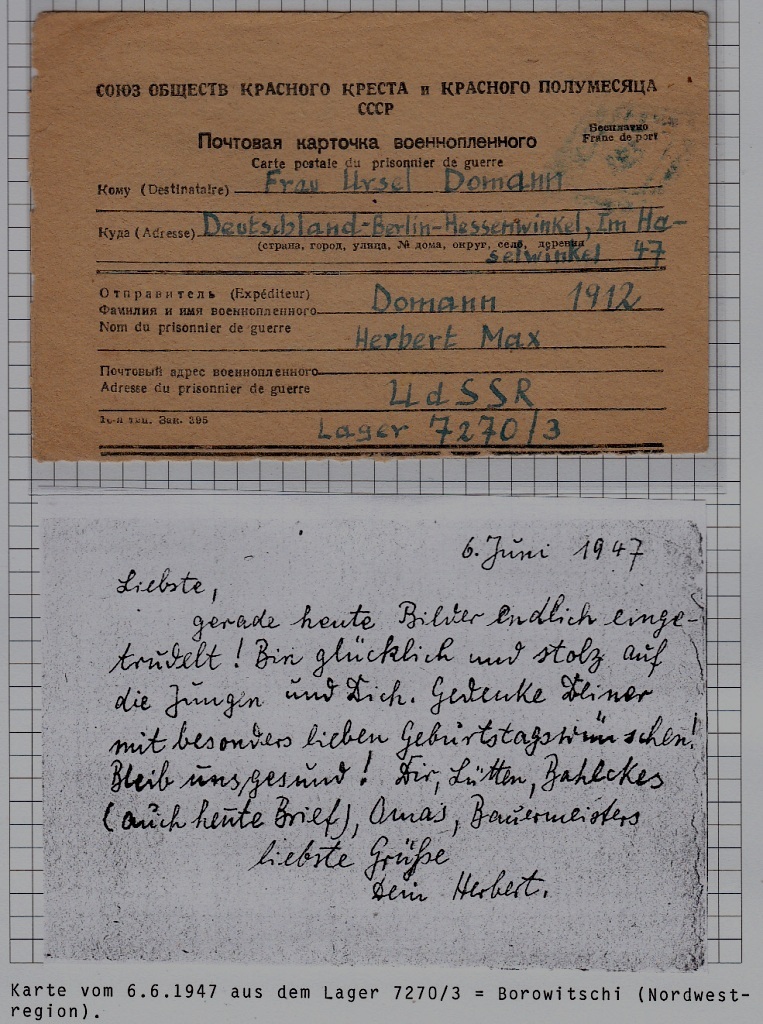 СОЮЗ ОБЩЕСТВ КРАСНОГО КРЕСТА и КРАСНОГО ПОЛУМЕСЯЦА
СССР
Почтовая карточка военнопленного
Carte postale du prisonnier de guerre
Бесплатно
Franc de port
Кому (Destinataire) Frau Ursel Domann
Куда (Adresse) Deutschland-Berlin-Hessenwinkel, Im Ha-
(страна, город, улица, № дома, округ, село, деревня
selwinkel 47
Отправитель (Expéditeur)
Фамилия и имя военнопленного Domann 1912
Nom du prisonnier de guerre Herbert Max
Почтовый адрес военнопленного
Adresse du prisonnier de guerre UdSSR
Зак. 395
Lager 7270/3
6. Juni 1947
Liebste,
gerade heute Bilder endlich einge-
trudelt! Bin glücklich und stolz auf
die Jungen und Dich. Gedenke Deiner
mit besonders lieben Geburtstagswünschen!
Bleib uns gesund! Dir, Lütten, Bahlckes
(auch heute Brief), Omas, Bauermeisters
liebste Grüße
Dein Herbert.
Karte vom 6.6.1947 aus dem Lager 7270/3 = Borowitschi (Nordwest-
region).